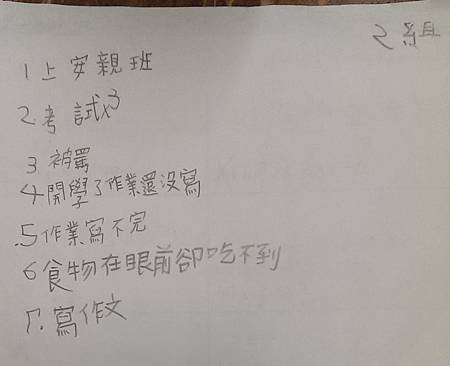 2組
1上安親班
2.考試x3
3被罵
4開學了作業還没寫
.5作業寫不完
6食物在眼前卻吃不到
7.寫作文